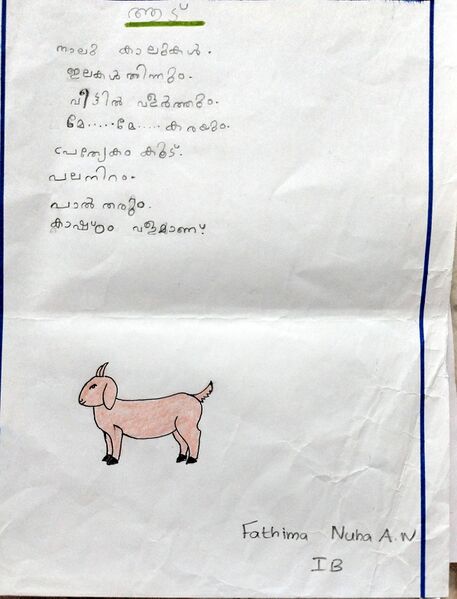 ആട്
നാലു കാലുകൾ.
ഇലകൾ തിന്നും.
വീട്ടിൽ വളർത്തും.
മേ.....മേ..... കരയും.
പ്രത്യേകം കൂട്.
പലനിറം.
പാൽ തരും.
കാഷ്ഠം വളമാണ്.
Fathima Nuha A.N
I B